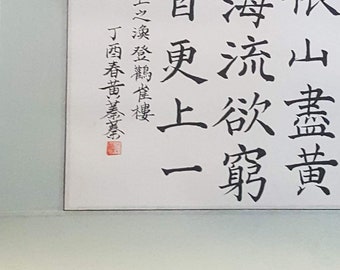 依山盡黃
海流欲窮
目更上一
王之渙登鸛雀樓
丁酉春黃蓁蓁